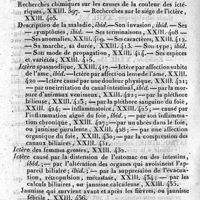 Recherches chimiques sur les causes de la couleur des ictériques, XXIII. 397. — Recherches sur le siége de l'ictère, XXIII. 408.
Description de la maladie, ibid. — Son invasion, ibid. — Ses symptômes, ibid. — Ses terminaisons, XXIII. 408. — Ses anomalies, XXIII. 409. — Ses caractères, XXIII. 412. — Sa marche, sa durée, XXIII. 413. — Son type, ibid. — Son mode de propagation, XXIII. 414. — Ses espèces et variétés, XXIII. 415.
Ictère spasmodique, XXIII. 417. — Ictère par affection subite de l'âme, ibid. — Ictère par affection lente de l'âme, XXIII. 420 — ictère causé par une douleur physique, XXIII. 421; — par une irritation du canal intestinal, ibid.; — par la pléthore bilieuse, XXIII. 423; — par la pléthore sanguine du foie, XXIII. 424; — par inflammation, XXIII. 425; — causé par l'inflammation aiguë du foie, ibid.; — par inflammation chronique, XXIII. 427; — par une affection organique ou purulente, XXIII. 428; — par une affection organique, XXIII. 430; — par la compression des canaux biliaires, XXIII. 431.
Ictère des femmes grosses, XXIII. 432.
Ictère causé par la distension de l'estomac ou des intestins, ibid.; — par l'altération des organes qui avoisinent l'appareil biliaire; ibid.; — par la suppression de l'évacuation, rétropulsion, métastase, XXIII. 434; — par les calculs biliaires, ou jaunisse calculeuse, XXIII. 435.
Jaunisse qui survient avant et après les fièvres, ou jaunisse fébrile, XXIII. 436.